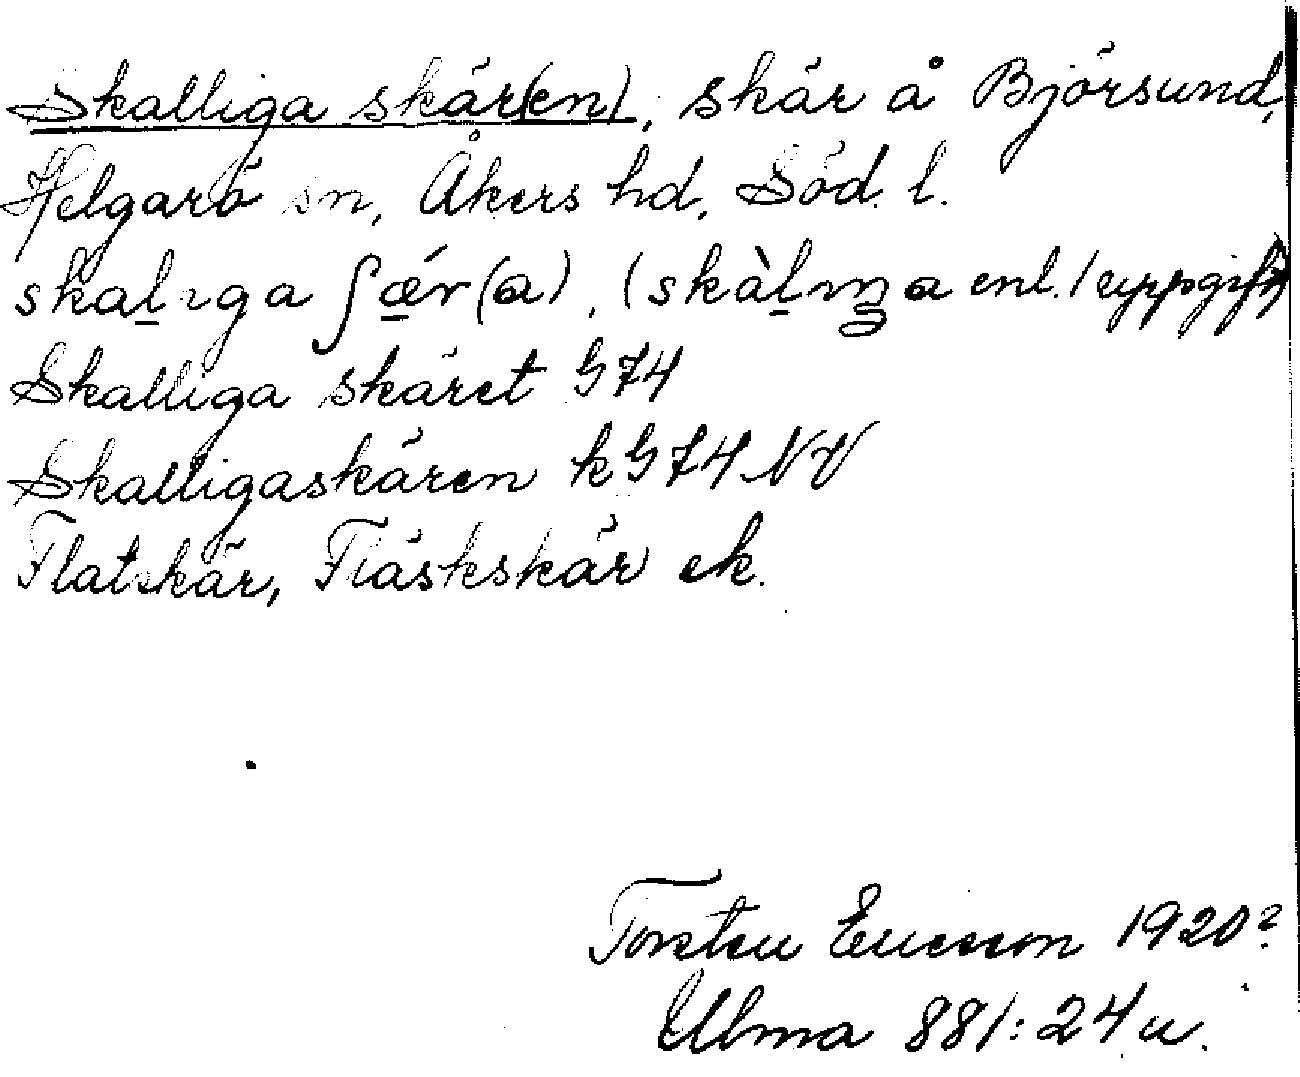 Skalliga skär(en), skär å Björsund,
Helgarö sn, Åkers hd, Söd. l.
skaḻıga ʃǽ̱r(a), (skàḻıŋa enl. 1 uppgift)
Skalliga skäret G74
Skalligaskären kG74 NV
Flatskär, Fläskskär ek.
Torsten Ericsson 1920?
Ulma 881:24 u.